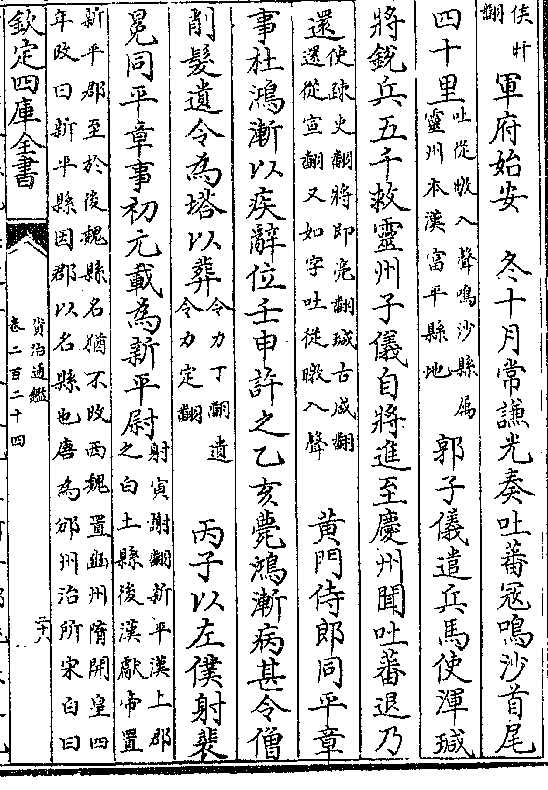 侯旰
翻
軍府始安　冬十月常謙光奏吐蕃冦鳴沙首尾
四十里
吐從暾入聲鳴沙縣屬
靈州本漢富平縣地
郭子儀遣兵馬使渾瑊
將銳兵五千救靈州子儀自將進至慶州聞吐蕃退乃
還
使疎史翻將即亮翻瑊古咸翻
還從宣翻又如字吐從暾入聲
黃門侍郎同平章
事杜鴻漸以疾辭位壬申許之乙亥薨鴻漸病甚令僧
削髮遺令為塔以葬
令力丁翻遺
令力定翻
丙子以左僕射裴
冕同平章事初元載為新平尉
射寅謝翻新平漢上郡
之白土縣後漢獻帝置
新平郡至於後魏縣名猶不改西魏置豳州隋開皇四
年改曰新平縣因郡以名縣也唐為邠州治所宋白曰
欽定四庫全書
資治通鑑
卷二百二十四
二十八